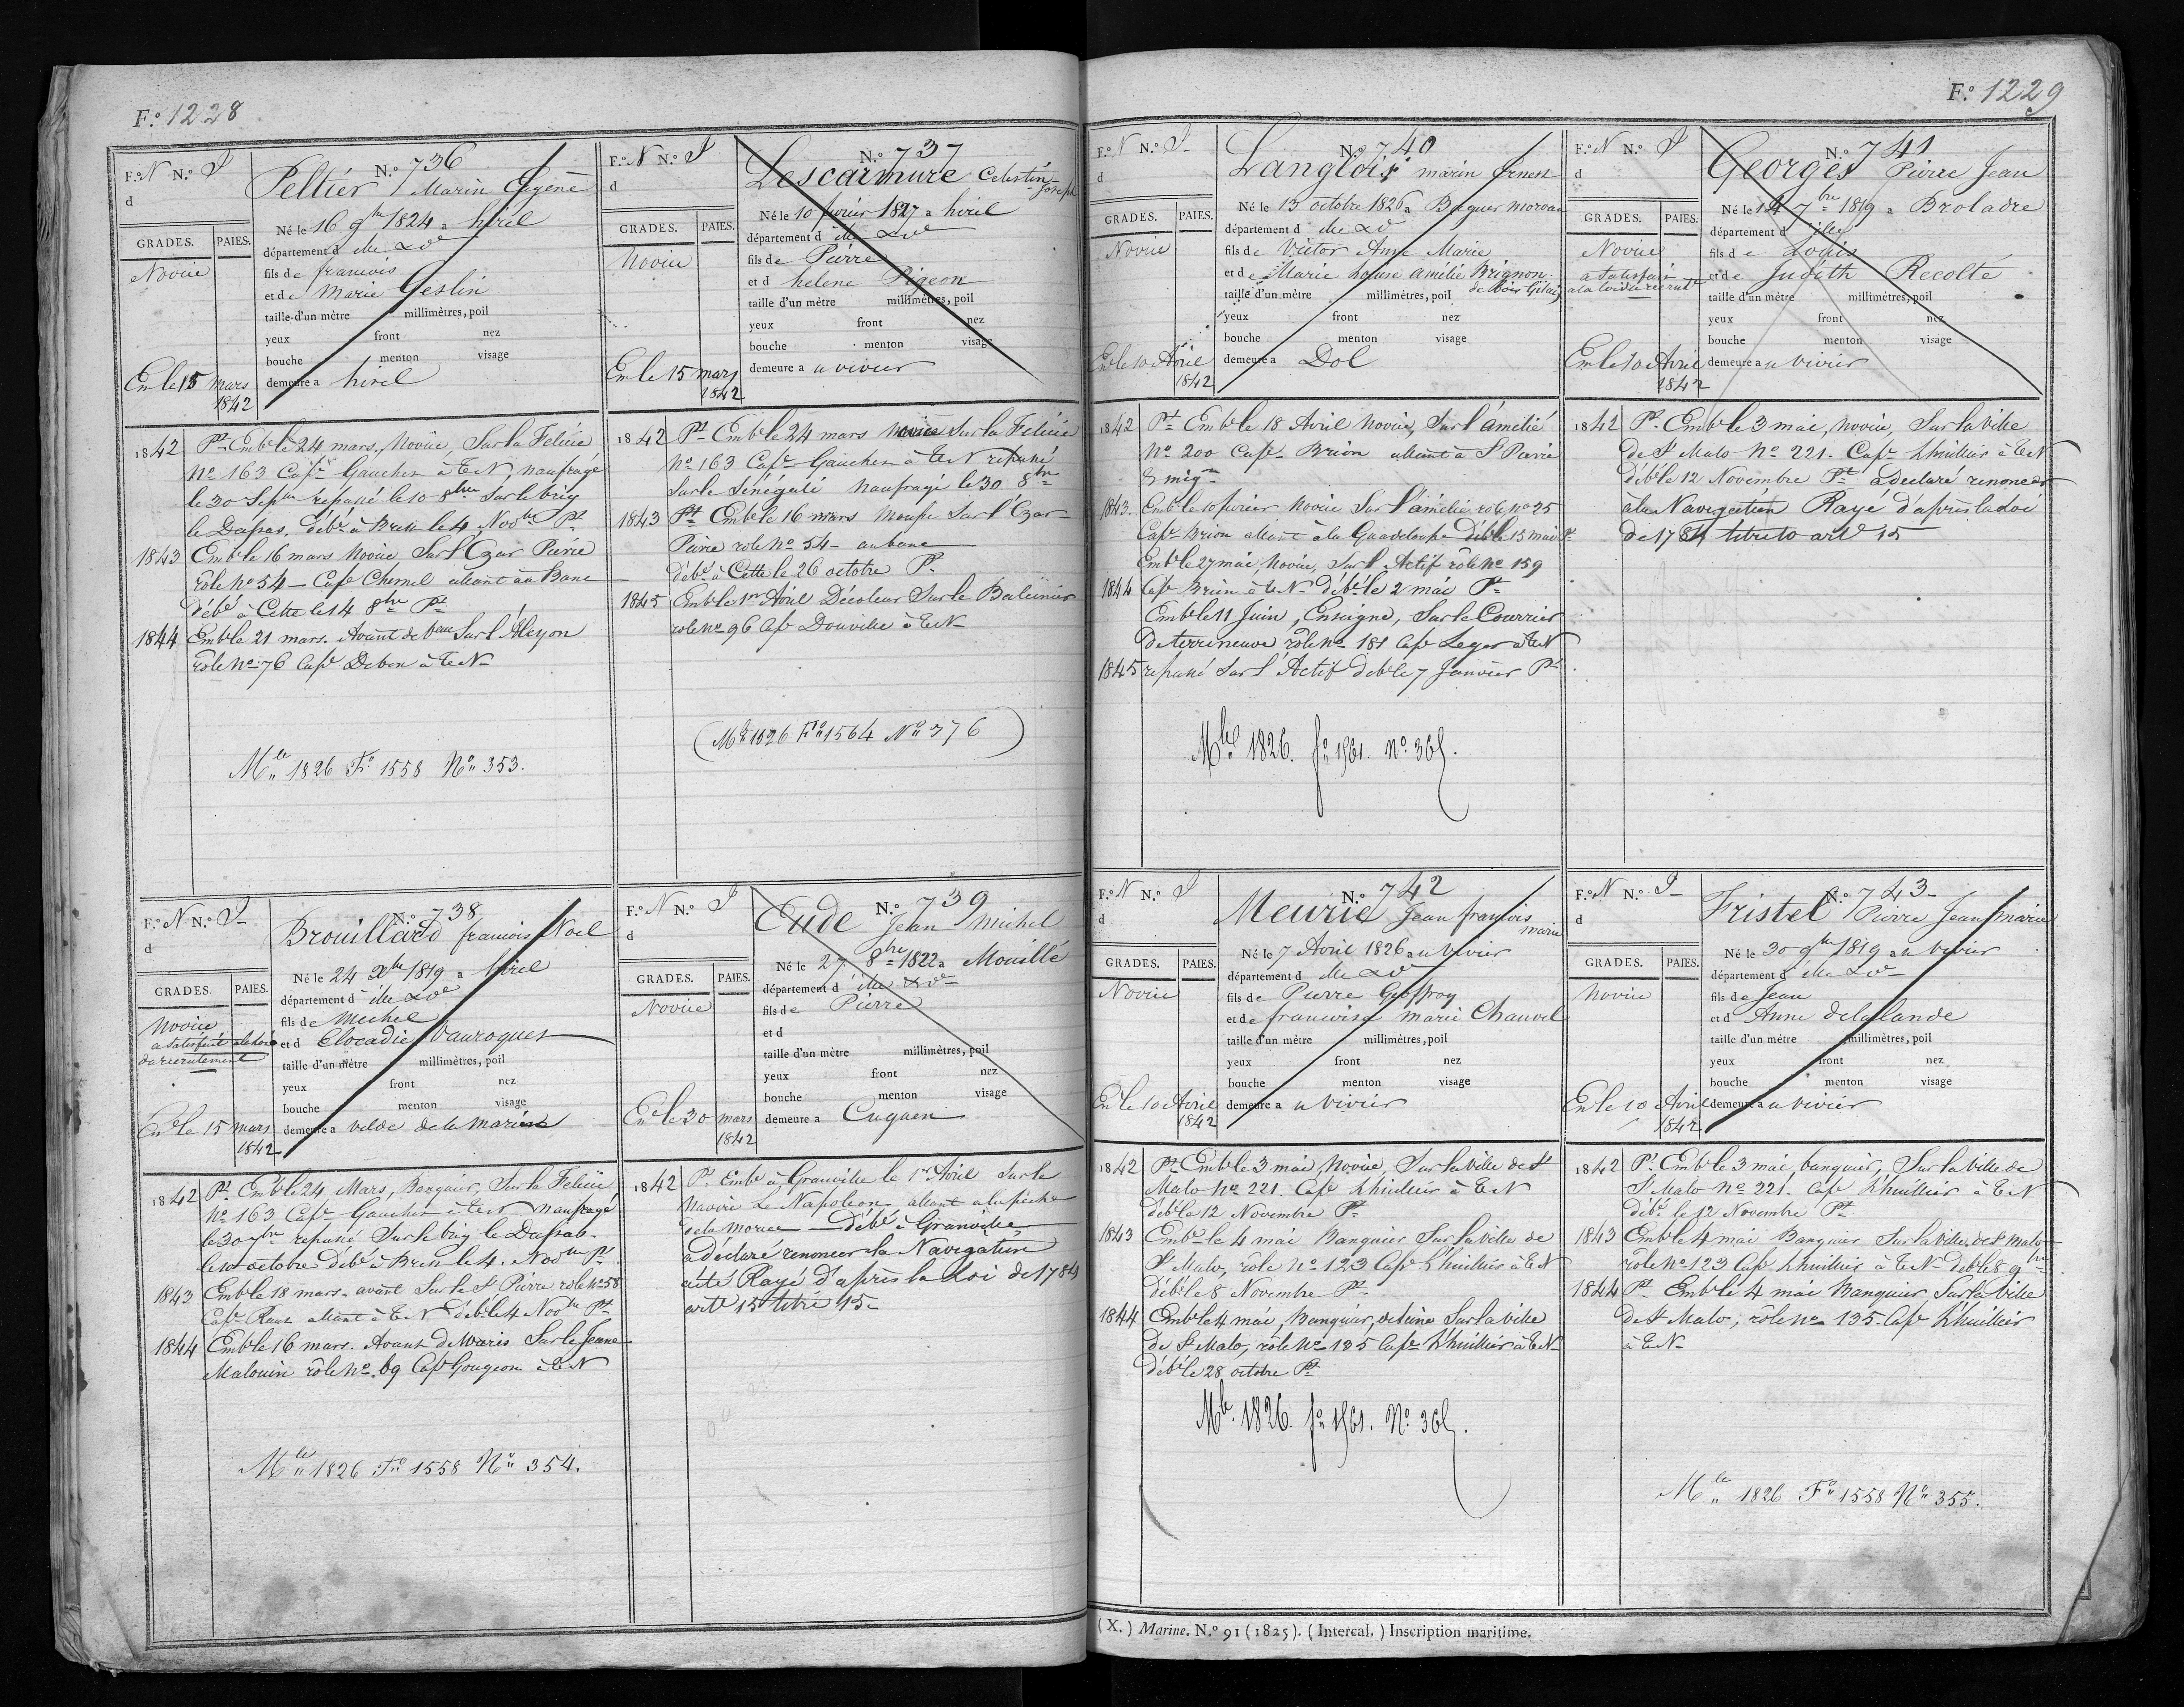 F.o 1228
F.o N N.o S
d
GRADES. PAIES.
Novice
Em le 15 mars
1842
N.o 736
Peltier Marin Eugène
Né le 16 9bre 1824 a hirel
département d ille & Vne
fils de francois
et de Marie Geslin
taille d'un mètre millimètres, poil
yeux front nez
bouche menton visage
demeure a hirel
1842 Pt Emb le 24 mars, Novice, Sur la Felicie
No 163 Cape Gaucher à TN, naufragé
le 30 Sepbre repassé le 10 8bre Sur le brig
le Dassas, débé à Brest le 4 Novbre Pt
1843 Emb le 16 mars Novice Sur l'Czar Pierre
rôle No 54 - Cape Chemel allant au Banc
débé à Cette le 14 8bre Pt
1844 Emb le 21 mars. Avant de banc Sur l'Alcyon
rôle No 76 Cape Debon à TeN
Mle 1826 Fo 1558 No 353.
F.o N N.o S
d
GRADES. PAIES.
Novice
Em le 15 mars
1842
N.o 737
Lescarmure Celestin
Joseph
Né le 10 fevrier 1827 a hirel
département d ille & Vne
fils de Pierre
et d helene Pigeon
taille d'un mètre millimètres, poil
yeux front nez
bouche menton visage
demeure a u vivier
1842 Pt Emb le 24 mars Novice Sur la Felicie
No 163 Cape Gaucher à TeN repassé
Sur le Sénégali Naufragé le 30 8bre
1843 Pt Emb le 16 mars Mousse Sur l'Czar
Pierre role No 54 - au banc
débé à Cette le 26 octobre Pt
1845 Emb le 1er Avril Décoleur Sur le Baleinier
role No 96 Cap Douville à TeN
(Mle 1826 Fo 1564 No 376)
F.o N N.o S
d
GRADES. PAIES.
Novice
a satisfait a la loi
du recrutement
Em le 15 mars
1842
N.o 738
Brouillard francois Noel
Né le 24 Xbre 1819 a hirel
département d ille & Vne
fils de Michel
et d Elocadie Vauroques
taille d'un mètre millimètres, poil
yeux front nez
bouche menton visage
demeure a vilde de la marine
1842 Pt. Emb le 24 Mars, Banquier, Sur la Felicie
No 163 Cape Gaucher à TeN naufragé
le 30 7bre repassé Sur le brig le Dassas
le 10 octobre débé à Brest le 4 Novbre Pt
1843 Emb le 18 mars avant Sur le St Pierre role No 58
Cape Raux allant à TeN débé le 4 Novbre Pt
1844 Emb le 16 mars. Avant de Marie Sur le Jeune
Malouin rôle No 69 Cape Gougeon à TeN
Mle 1826 Fo 1558 No 354.
F.o N N.o S
d
GRADES. PAIES.
Novice
Em le 30 mars
1842
N.o 739
Eude Jean Michel
Né le 27 8bre 1822 a Mouillé
département d ille & Vne
fils de Pierre
et d
taille d'un mètre millimètres, poil
yeux front nez
bouche menton visage
demeure a Cuguen
1842 Pt Embé à Granville le 1er Avril Sur le
Navire Le Napoleon allant a la pêche
de la Morue - débé à Granville
a déclaré renoncer la Navigation
a été Rayé d'après la Loi de 1784
arte 15 titre 15
F.o 1229
F.o N N.o S
d
GRADES. PAIES.
Novice
Em le 10 Avril
1842
N.o 740
Langlois marin Ernest
Né le 13 octobre 1826 a Baguer morvan
département d ille & V
fils de Victor Anne Marie
et de Marie Louise Amélie Brignon
de bois
taille d'un mètre millimètres, poil
yeux front nez
bouche menton visage
demeure a Dol
1842 Pt Emb le 18 Avril Novice, Sur l'amélié
No 200 Cape Brion allant à St Pierre
& miqon
1843. Emb le 10 fevrier Novice Sur l'amélie role No 25
Cape Brion allant à la Guadeloupe débé le 15 mai Pt
Emb le 27 mai, Novice, Sur l'Actif rôle No 159
1844 Cap Brion à TeN débé le 2 mai Pt
Emb le 11 Juin, Enseigne, Sur le Courrier
de terreneuve rôle No 181 Cape Leger à TeN
1845 repassé Sur l'Actif debé le 7 Janvier Pt
Mle 1826. fo 1561. No 365.
F.o N N.o S
d
GRADES. PAIES.
Novice
a satisfait
a la loi du recrut
Em le 10 Avril
1842
N.o 741
Georges Pierre Jean
Né le 14 7bre 1819 a Broladre
département d ille
fils de Louis
et de Judith Recolté
taille d'un mètre millimètres, poil
yeux front nez
bouche menton visage
demeure a u vivier
1842 Pt Emb le 3 mai, novice, Sur la ville
de St Malo No 221. Cape Lhuillier à TeN
débé le 12 Novembre Pt a declaré renoncer
à la Navigation Rayé d'après la loi
de 1784 titre 10 art 15
F.o N N.o S
d
GRADES. PAIES.
Novice
Em le 10 Avril
1842
N.o 742
Meurie Jean francois
marie
Né le 7 Avril 1826 a u vivier
département d ille & V
fils de Pierre Geoffroy
et de francoise marie Chauvel
taille d'un mètre millimètres, poil
yeux front nez
bouche menton visage
demeure a u vivier
1842 Pt Emb le 3 mai Novice, Sur la ville de St
Malo No 221. Cape Lhuillier à TeN
débé le 12 Novembre Pt
1843 Embé le 4 mai Banquier Sur la ville de
St Malo, rôle No 123 Cape Lhuillier à TeN
débé le 8 Novembre Pt
1844 Emb le 4 mai, Banquier, Sur la ville
de St Malo, rôle No 135 Cape Lhuillier à TeN
débé le 28 octobre Pt
Mle 1826. fo 1561. No 365.
F.o N N.o S
d
GRADES. PAIES.
Novice
Em le 10 Avril
1842
N.o 743
Fristel Pierre Jean marie
Né le 30 9bre 1819 a u vivier
département d ille & Vne
fils de Jean
et d Anne delalande
taille d'un mètre millimètres, poil
yeux front nez
bouche menton visage
demeure a u vivier
1842 Pt Emb le 3 mai, banquier, Sur la ville de
St Malo No 221. Cape Lhuillier à TeN
débé le 12 Novembre Pt
1843 Emb le 4 mai Banquier Sur la ville de St Malo
rôle No 123 Cape Lhuillier à TeN debé le 8 9bre
1844 Pt Emb le 4 mai Banquier Sur la Ville
de St Malo, rôle No 135. Cape Lhuillier
à TeN
Mle 1826 Fo 1558 No 355.
(X.) Marine. N.o 91 (1825). (Intercal.) Inscription maritime.